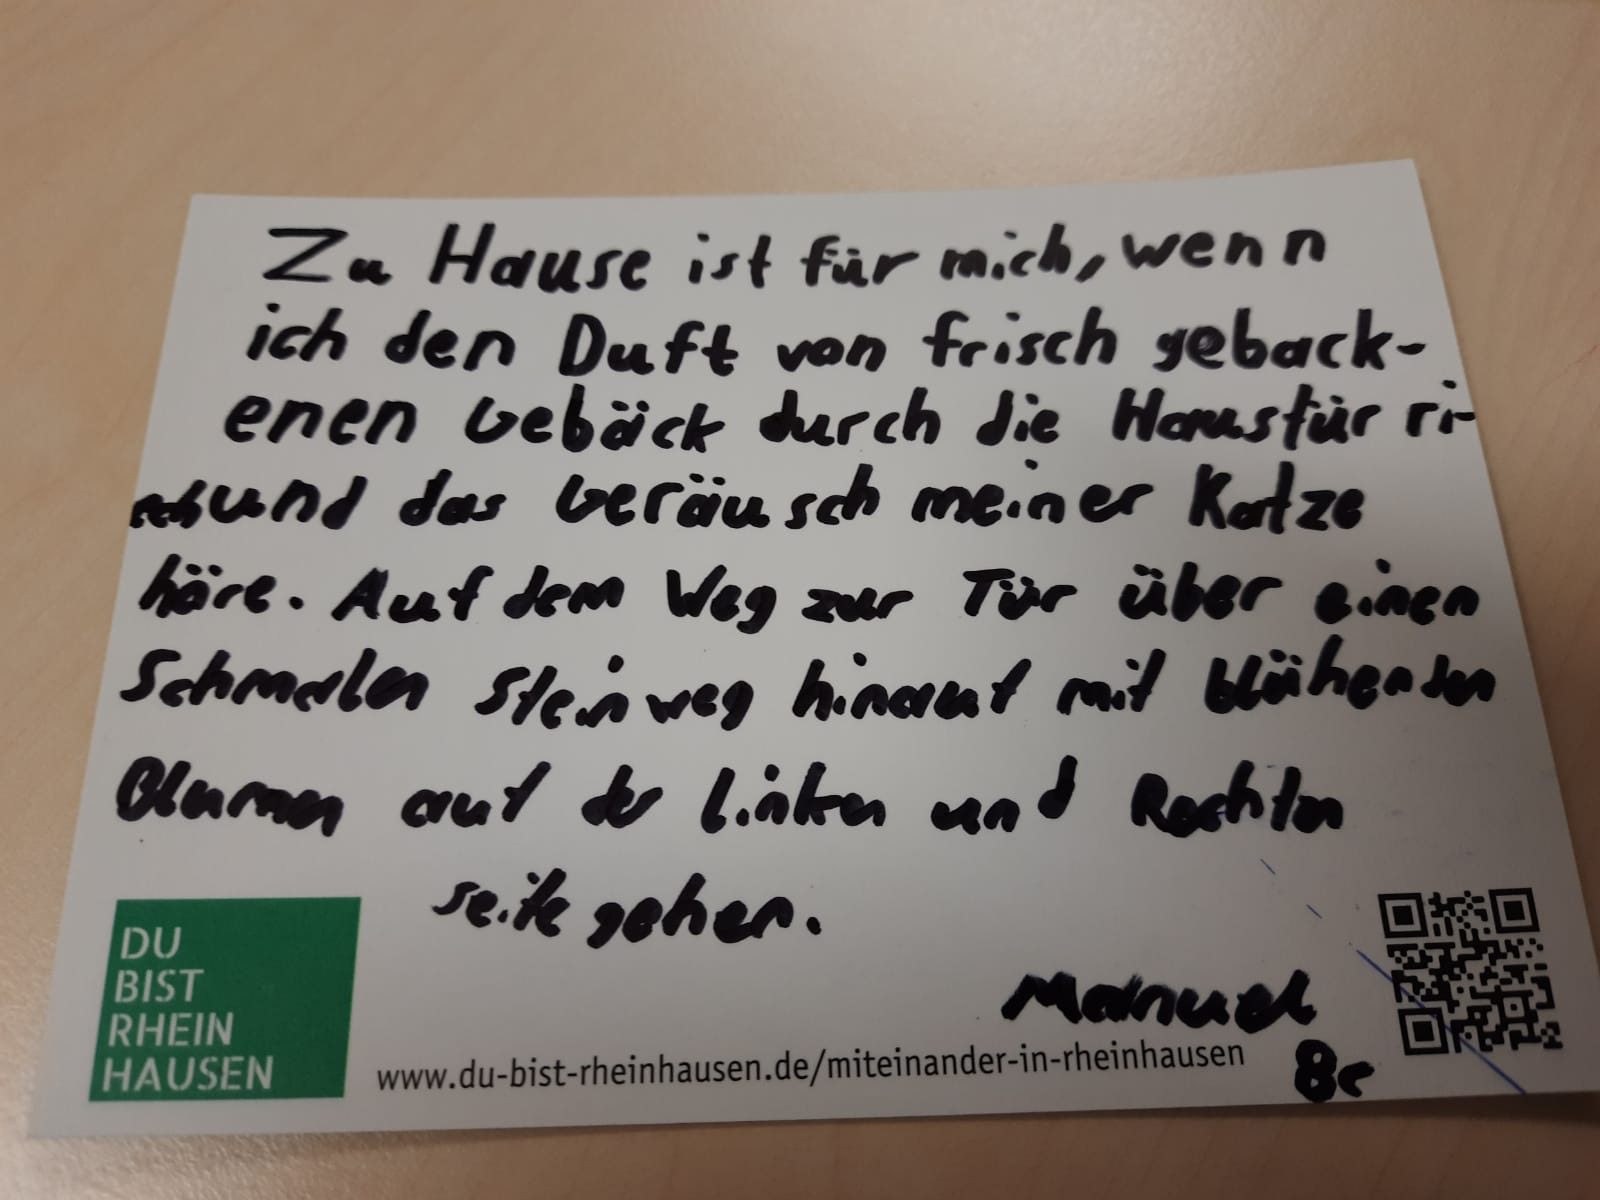 Zu Hause ist für mich, wenn
ich den Duft von frisch geback-
enen Gebäck durch die Haustür ri-
echund das Geräusch meiner Katze
häre. Auf dem Weg zur Tür über einen
Schmalen Steinweg hinauf mit blühenden
Blumen auf der linken und Rechten
seite gehen.
Manuel
8c
DU
BIST
RHEIN
HAUSEN
www.du-bist-rheinhausen.de/miteinander-in-rheinhausen